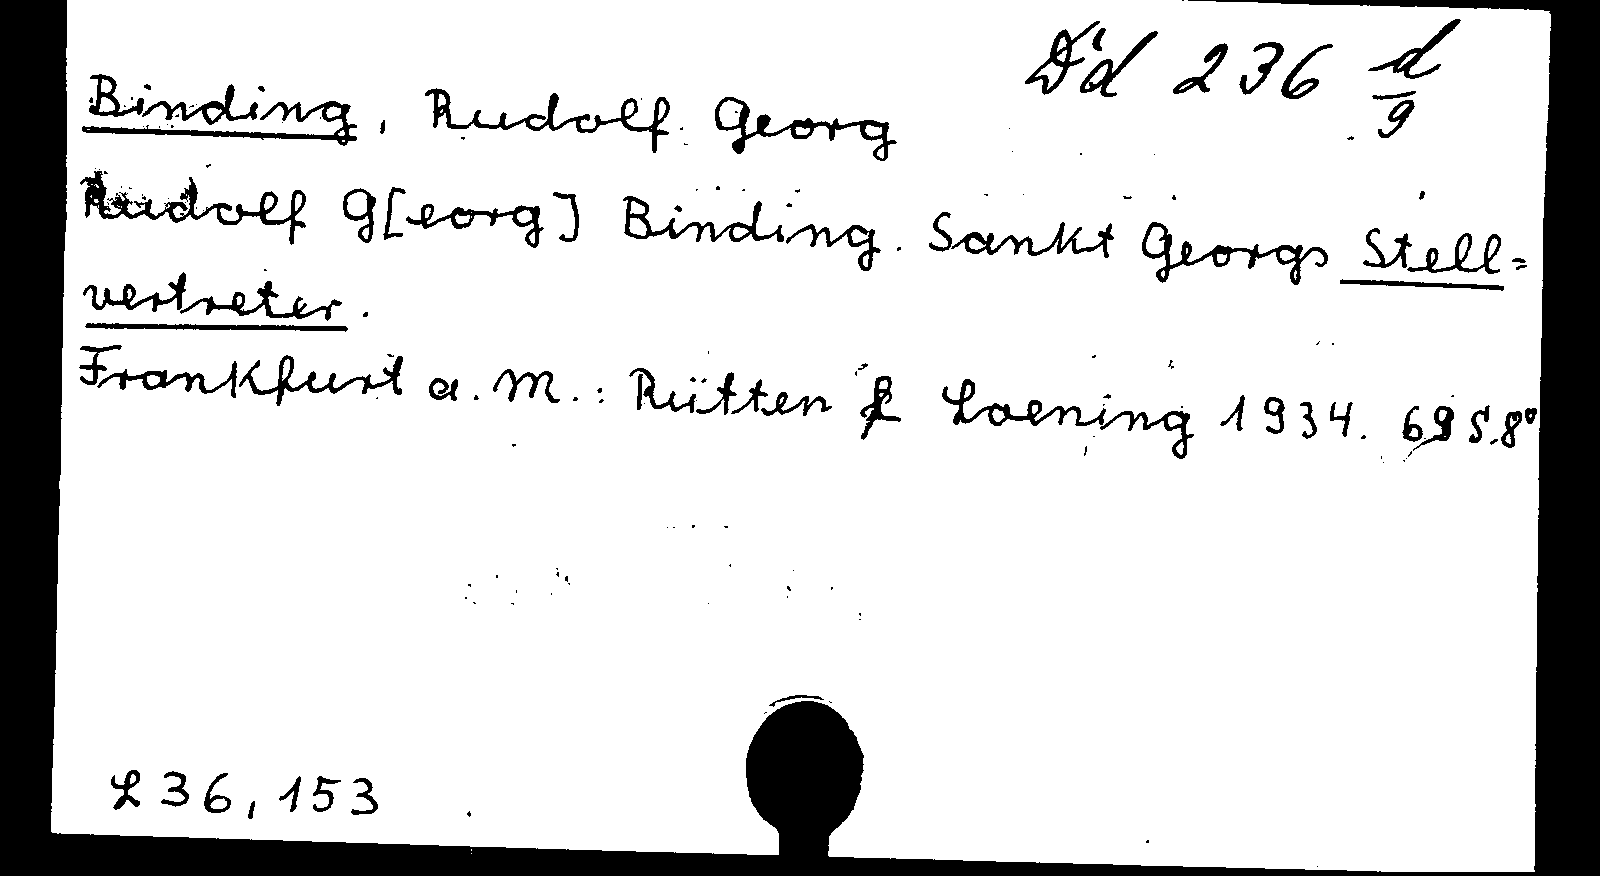 Dd 236 d/9
Binding, Rudolf Georg
Rudolf G[eorg] Binding. Sankt Georgs Stell=
vertreter.
Frankfurt a. M.: Rütten & Loening 1934. 69 S. 8°
L 36, 153